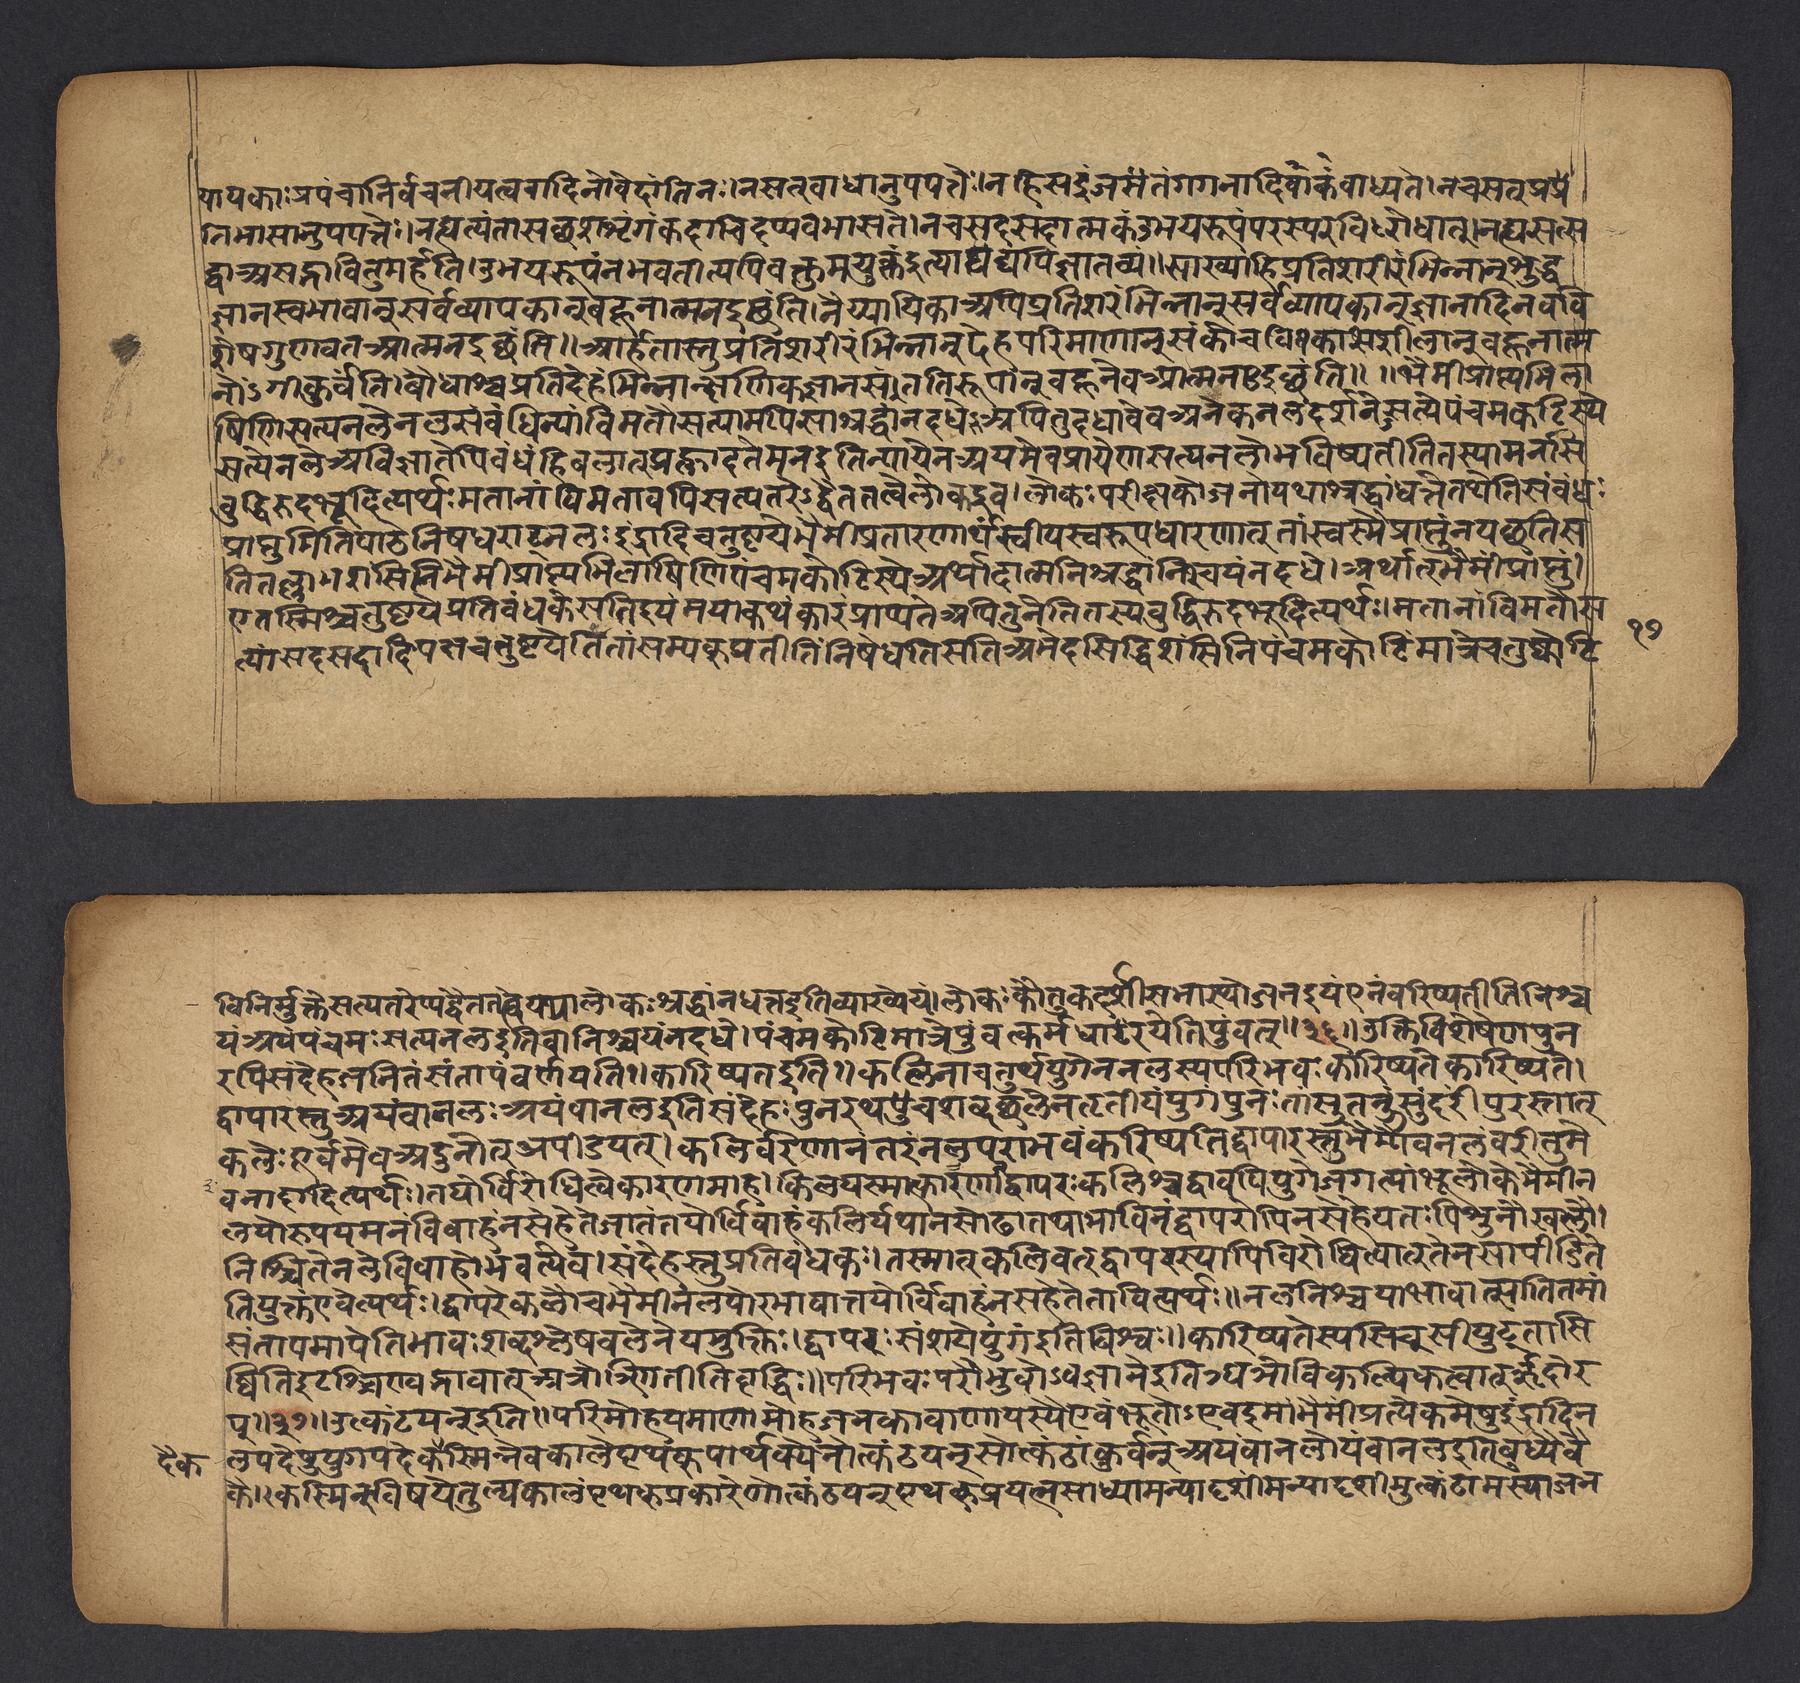 यायकाः प्रपंचानिर्वचनीयत्ववादिनोवेदांतिनः।नसत्त्वबाधानुपपत्तेः।नहिसद्रूंजमंतंगगनादिवाकंबाध्यते।नचसत्त्वप्रप्रे
तिभासानुपपत्तेः।नह्यत्यंतासच्छशशृंगंकदाचिदप्यवभासते।नचसदसदात्मकंउभयरूपंपरस्परविरोधात्।नह्यसत्स
द्वाअसद्भावितुमर्हति।उभयरूपंनभवतीत्यपिवक्तुमयुक्तंइत्याद्यद्यपिज्ञातव्यं॥सांख्याहिप्रतिशरीरंभिन्नान्शुद्ध
ज्ञानस्वभावान्सर्वव्यापकान्बहूनात्मनइछंति।नैय्यायिकाअपिप्रतिशरंभिन्नान्सर्वव्यापकान्ज्ञानादिनववि
शेषगुणवतआत्मनइछंति॥आर्हतास्तुप्रतिशरीरंभिन्नान्देहपरिमाणान्संकोचविकासशीलान्बहूनात्म
नोंऽगीकुर्वंति।बौधाश्चप्रतिदेहंभिन्नान्क्षणिकज्ञानसंततिरूपान्बहूनेवआत्मनइछंति॥ ॥भैमीप्राप्त्यभिला
षिणिसत्यनलेनलसंबंधिन्यांविमतौसत्यामपिसाश्रद्धांनदधेअपितुदधावेवअनेकनलदर्शनेसत्येपंचमकटिस्थे
सत्येनलेअविज्ञातेपिबंधंहिबलात्प्रह्लादतेमनइतिन्यायेनअयमेवप्रायेणसत्यनलोभविष्यतीतितस्यामनसि
बुद्धिरुदभूदित्यर्थःमतानांविमतावपिसत्यतरेऽद्वैततत्वेलोकइव।लोकःपरीक्षकोजनोयथाश्रद्धांधत्तेतथेतिसंबंधः
प्राप्तुमितिपाठेनिषधराट्नलःइंद्रादिचतुष्टयेभैमीप्रतारणार्थंस्वीयस्वरूपधारणात्तांस्वस्मैप्राप्तुंनयछतिस
तितल्लाभशंसिनिभैमीप्राप्त्यभिलाषिणिपंचमकोटिस्थेअर्थादात्मनिश्रद्धांनिश्चयंनदधे।अर्थात्भैमींप्राप्तुं।
एतस्मिंश्चतुष्टयेप्रतिबंधकेसतिइयंमयाकथंकारंप्राप्यतेअपितुनेतितस्यबुद्धिरुदभूदित्यर्थः।मतानांविमतौस
त्यांसदसदादिपक्षचतुष्टयेतितांसम्यक्प्रतीतिंनिषेधतिसतिअभेदसिद्धिशंसिनिपंचमकोटिमात्रेचतुष्कोटि
१७
विनिर्मुक्तेसत्यतरेप्यद्वैततत्वेयथालोकःश्रद्धांनधत्तइतिव्याख्येयं।लोकःकौतुकदर्शीसभास्थोजनइयंएनंवरिष्यतीतिनिश्च
यंअयंपंचमःसत्यनलइतिवानिश्चयंनदधे।पंचमकोटिमात्रेपुंवत्कर्मधारयेतिपुंवत्॥३६॥उक्तिविशेषेणपुन
रपिसंदेहजनितंसंतापंवर्णयति॥कारिष्यतइति॥कलिनाचतुर्थयुगेननलस्यपरिभवःकारिष्यतेकारिष्यते।
द्वापारस्तुअयंवानलःअयंवानलइतिसंदेहःपुनरथचशब्दछलेनतृतीयंयुगंपुनःतांसुतनुंसुंदरींपुरस्तात्
कलेःपूर्वमेवअदुनोत्अपीडयत्।कलिर्वरणानंतरंनलपराभवंकरिष्यतिद्वापारस्तुभैमीवनलंवरीतुमे
वनादादित्यर्थः।तयोर्विरोधित्वेकारणमाह।किलयस्मात्कारणाद्वापरःकलिश्चद्वावपियुगेजगत्यांभूलोकेभैमीन
लयोरुपयमनंविवाहंनसहेतेजातंतयोर्विवाहंकलिर्यथानसोढातथाभाविनंद्वापरोपिनसहेयतःपिशुनौखलौ।
निश्चितेनलेविवाहोभवत्येव।संदेहस्तुप्रतिबंधकः।तस्मात्कलिवत्द्वापरस्यापिविरोधित्वात्तेनसापीडिते
तियुक्तंएवेत्यर्थः।द्वापरेकलौचभैमीनलयोरभावात्तयोर्विवाहंनसहेतेतावित्यर्थः॥नलनिश्चयाभावात्सातितमां
संतापमापेतिभावःशब्दश्लेषबलेनेयमुक्तिः।द्वापरःसंशयेयुगंइतिविश्वः॥कारिष्यतेस्यसिच्सीयुट्तासि
ष्वितिइटश्चिण्वद्भावात्अचोञ्णितीतिवृद्धिः॥परिभवःपरौभुवोऽवज्ञानेइतिऽपञोविकल्पिकत्वात्ॠदोर
प्॥३७॥उत्कंठयन्इति॥परिमोहयमाणामोहजनकावाणायस्यएवंभूतोऽएवइमांभैमींप्रत्येकमेषुइंद्रादिन
लपदेषुयुगपदेकस्मिन्नेवकालेएष्वंकुपार्थक्येनोत्कंठयन्सोत्कंठांकुर्वन्अयंवानलोयंवानलइतिबुध्यैवै
दैक
कैकस्मिन्विषयेतुल्यकालंपृथक्प्रकारेणोत्कंठयन्पृथक्प्रयत्नसाध्यामन्यादृशीमन्यादृशीमुत्कंठामस्याजन